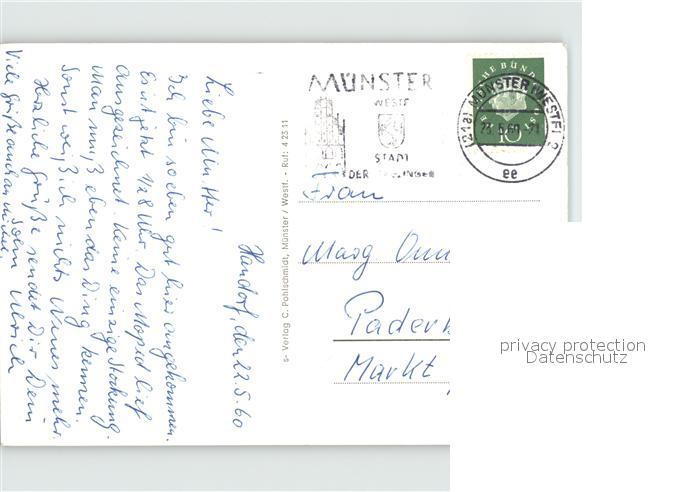 Handorf, den 22.5.60
Liebe Mutter!
Ich bin soeben gut hier angekommen.
Es ist jetzt 1/2 8 Uhr. Das Moped lief
ausgezeichnet. Keine einzige Stockung.
Man muß eben das Ding kennen.
Sonst weiß ich nichts Neues mehr.
Herzliche Grüße sendet Dir Dein
Sohn Ulrich
Viele Grüße auch an
s- Verlag C. Pohlschmidt, Münster / Westf. - Ruf: 4 23 11
MÜNSTER
WESTF
STADT
DER
(21a) MÜNSTER (WESTF) 2
23.5.60
ee
10
Frau
Marg
Pader
Markt
privacy protection
Datenschutz